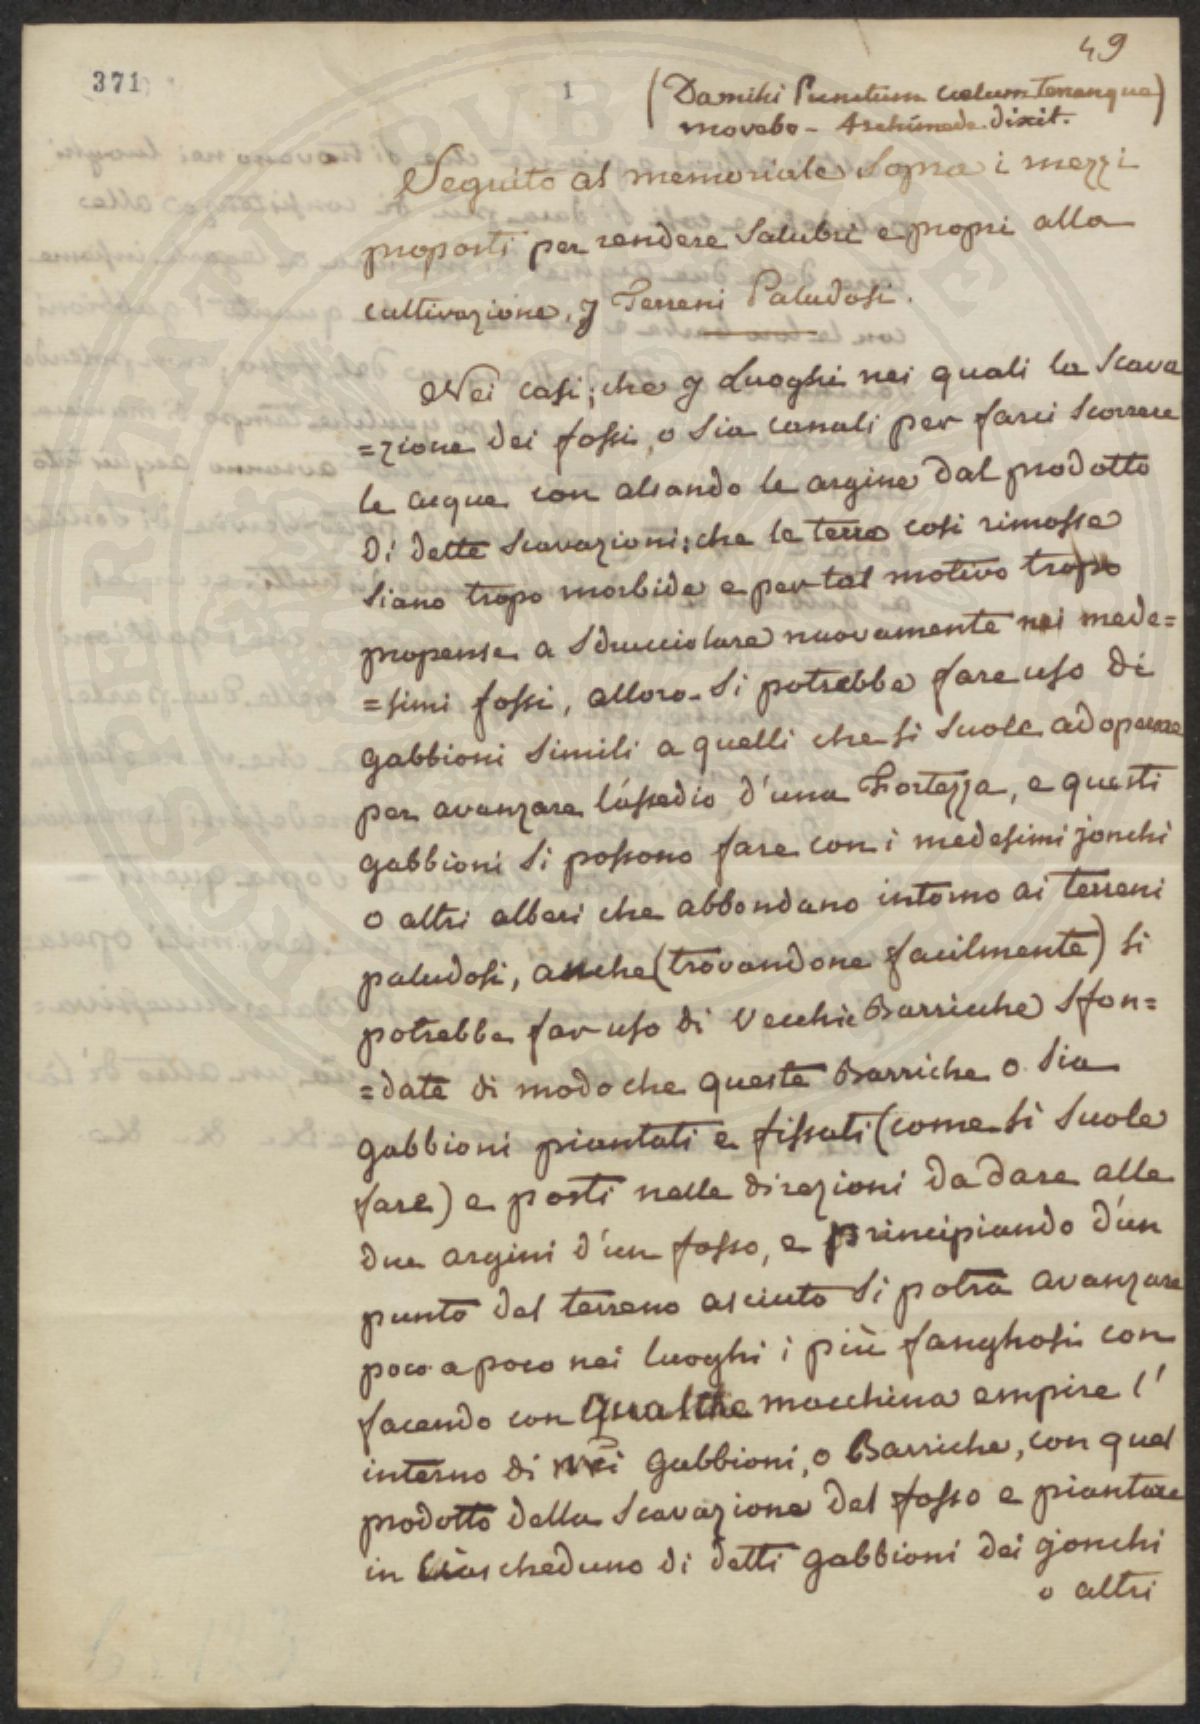 49
371
1
(Damihi Punctum Cælum Terramque)
movebo - Archimede dixit.
Seguito al memoriale Sopra i mezzi
proposti per rendere Salubri e propri alla
cultivazione, y Terreni Paludosi.
Nei casi; che y Luoghi nei quali la Scava
=zione dei fossi, o Sia canali per farci Scorrere
le acque con alsando le argine dal prodotto
di dette Scavazioni; che le terre cosi rimosse
Siano tropo morbide e per tal motivo tropo
propense a Sdrucciolare nuovamente nei mede=
=simi fossi, allora Si potrebbe fare uso di
gabbioni Simili a quelli che si Suole adoperare
per avanzare l'assedio d'una Fortezza, e questi
gabbioni Si possono fare con i medesimi jonchi
o altri alberi che abbondano intorno ai terreni
paludosi, anche (trovandone facilmente) si
potrebbe far uso di Vecchie Barricche Sfon=
=date di modo che queste Barriche o Sia
gabbioni piantati e fissati (come si Suole
fare) e posti nelle direzioni da dare alle
due argini d'un fosso, e principiando d'un
punto del terreno asciuto Si potrà avanzare
poco a poco nei luoghi i più fanghosi con
facendo con qualche macchina empire l'
interno di Gabbioni, o Barriche, con quel
prodotto della Scavazione del fosso e piantare
in Ciascheduno di detti gabbioni dei gionchi
o altri